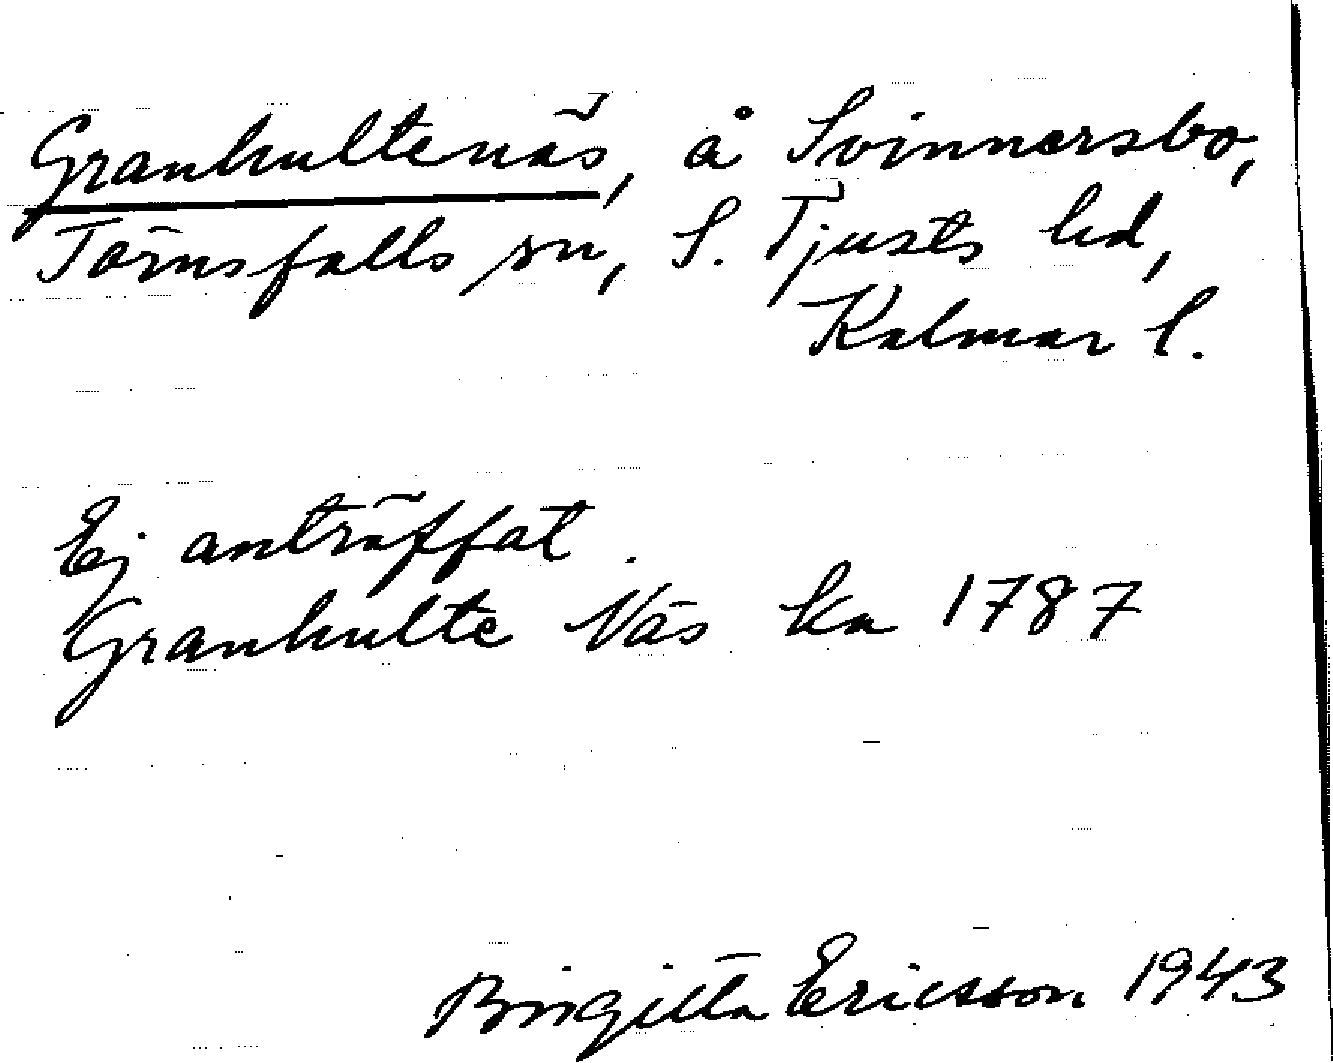 Granhultenäs, å Svinnersbo,
Törnsfalls sn, S. Tjusts hd,
Kalmar l.
Ej anträffat.
Granhulte Näs ka 1787
Birgitta Ericsson 1943